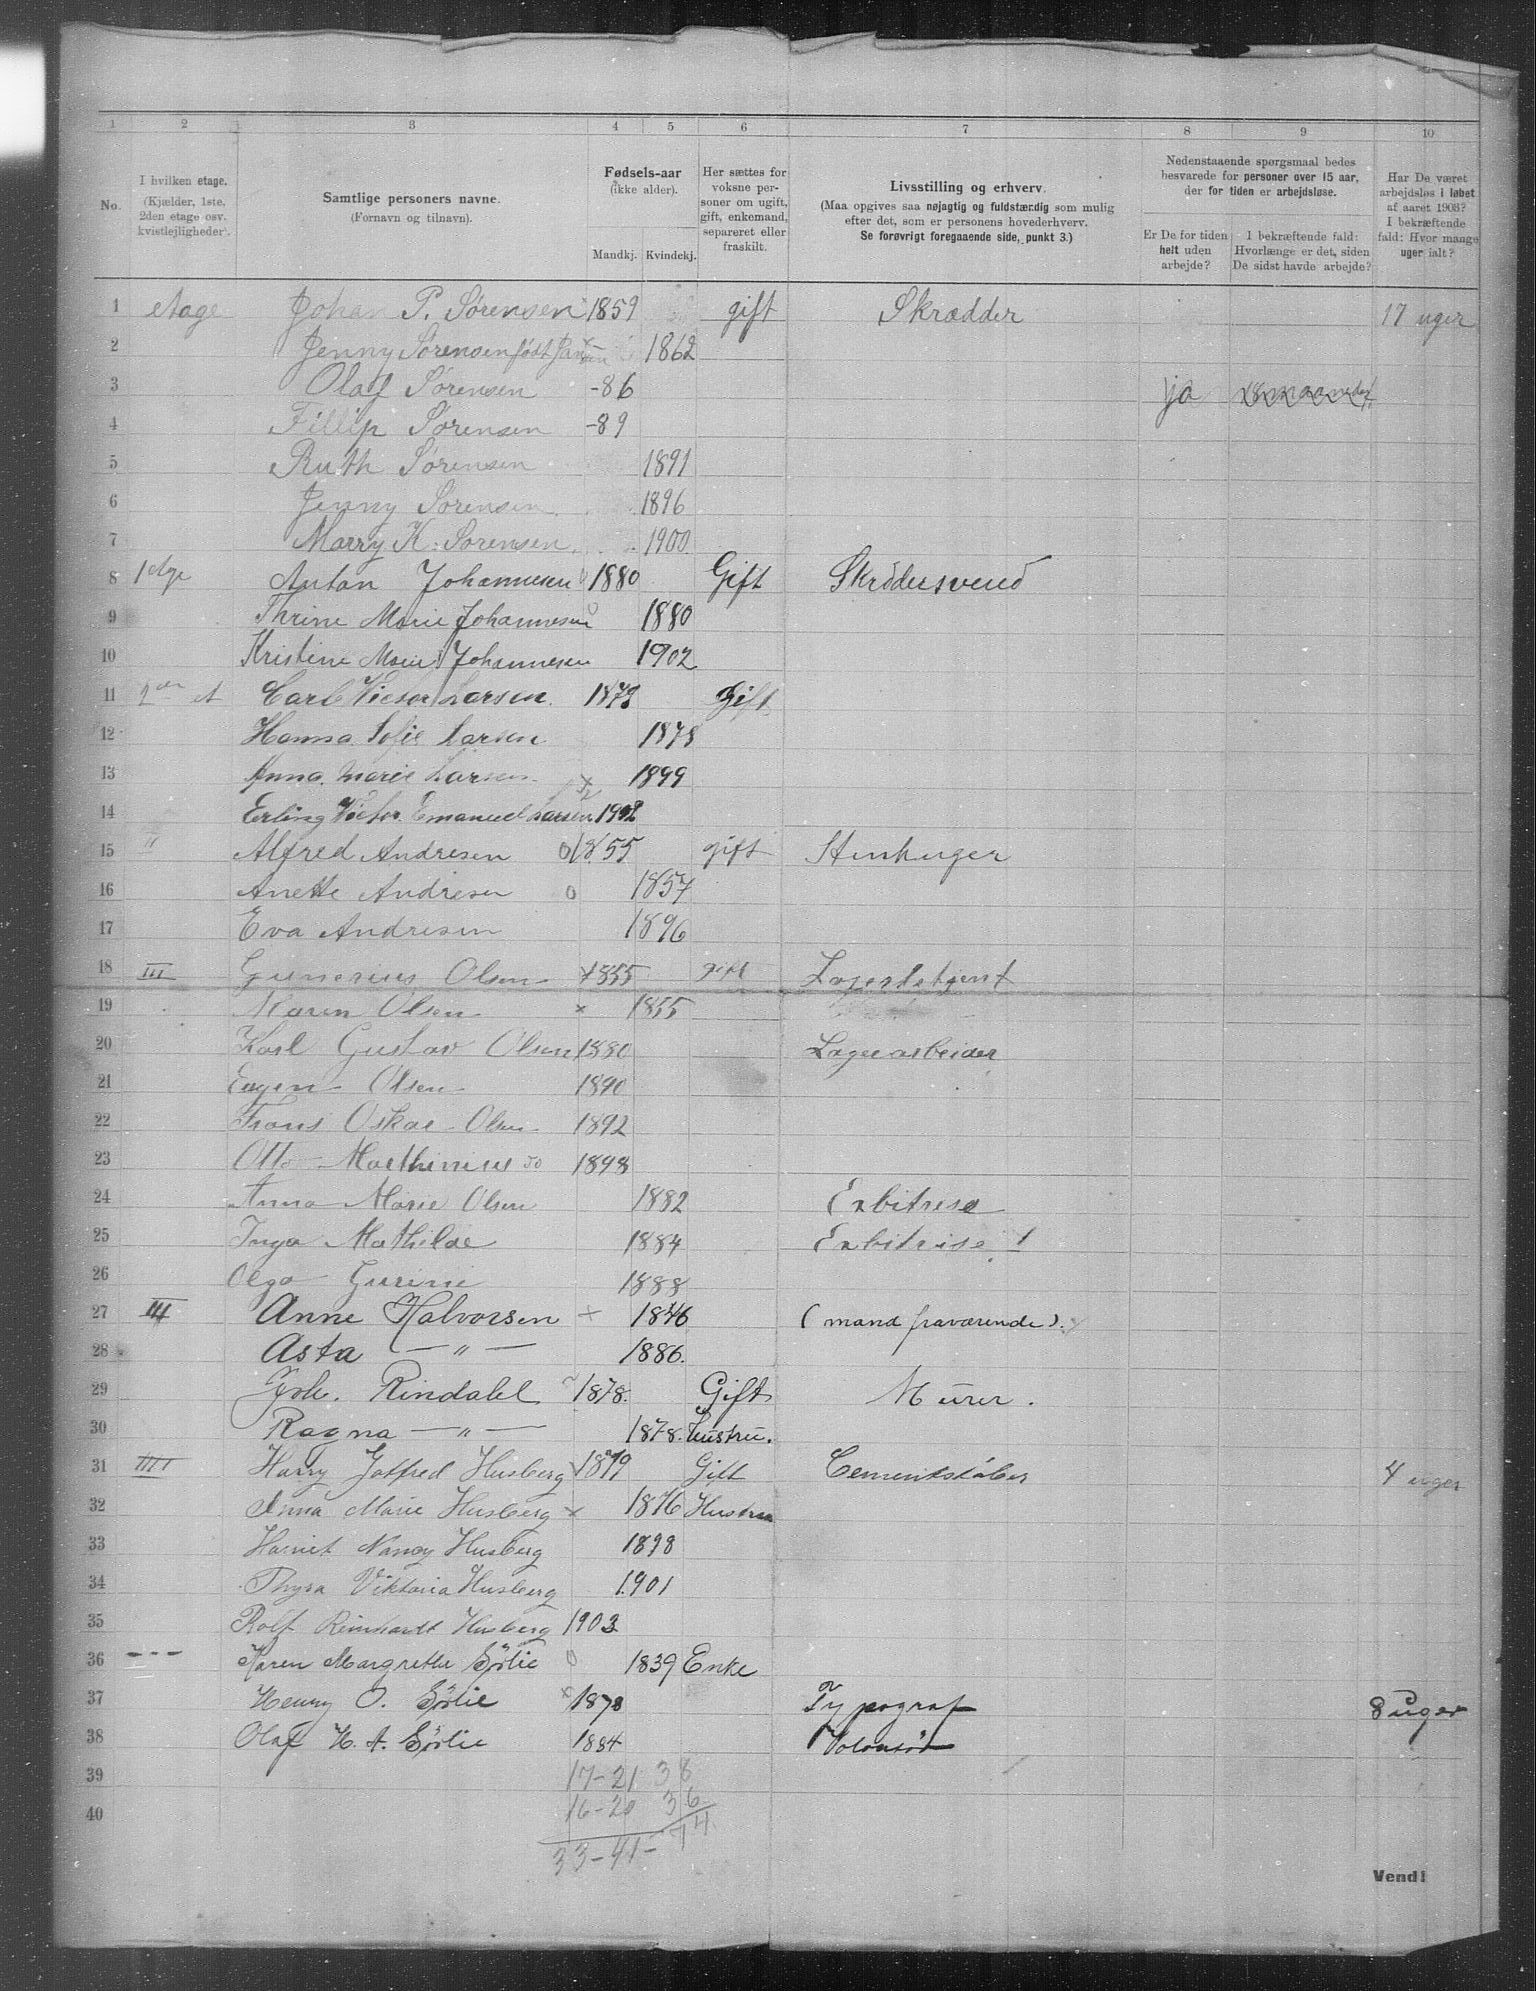 1 2 3 4 5 6 7 8 9 10
No.
I hvilken etage.
(Kjælder, 1ste,
2den etage osv.
kvistleiligheder).
Samtlige personers navne.
(Fornavn og tilnavn).
Fødsels-aar
(ikke alder).
Mandkj. Kvindekj.
Her sættes for
voksne per-
soner om ugift,
gift, enkemand,
separeret eller
fraskilt.
Livsstilling og erhverv.
(Maa opgives saa nøjagtig og fuldstændig som mulig
efter det, som er personens hovederhverv.
Se forøvrigt foregaaende side, punkt 3.)
Nedenstaaende spørgsmaal bedes
besvarede for personer over 15 aar,
der for tiden er arbejdsløse.
Er De for tiden
helt uden
arbejde?
I bekræftende fald:
Hvorlænge er det, siden
De sidst havde arbejde?
Har De været
arbejdsløs i løbet
af aaret 1903?
I bekræftende
fald: Hvor mange
uger ialt?
1 etage Johan P. Sørensen 1859 gift Skrædder 17 uger
2 Jenny Sørensen født 1862
3 Olaf Sørensen -86 ja
4 Fillip Sørensen -89
5 Ruth Sørensen 1891
6 Jenny Sørensen 1896
7 Marry K. Sørensen 1900
8 1 etge Anton Johannesen 1880 Gift Skrædersvend
9 Thrine Marie Johannesen 1880
10 Kristine Marie Johannesen 1902
11 2den et Carl Victor Larsen 1879 Gift
12 Hanna Sofie Larsen 1878
13 Anna Marie Larsen 1899
14 Erling Victor Emanuel Larsen 1902
15 " Alfred Andresen 0 1855 gift Stenhuger
16 Anette Andresen 0 1857
17 Eva Andresen 1896
18 III Gunerius Olsen 1855 gift Lagerbetjent
19 Maren Olsen × 1855
20 Karl Gustav Olsen 1880 Lagerarbeider
21 Eugen Olsen 1890
22 Frans Oskar Olsen 1892
23 Otto Mathinius do 1898
24 Anna Marie Olsen 1882 Exbitrise
25 Inga Mathilde 1884 Exbitrise
26 Olga Gurine 1888
27 III Anne Halvorsen × 1846 (mand fraværende).
28 Asta — " — 1886.
29 Joh. Rindahl 1878. Gift Murer.
30 Ragna — " — 1878. Hustru.
31 IIII Harry Gotfred Husberg 1879 Gift Cementstøber 4 uger
32 Anna Marie Husberg × 1876 Hustru
33 Harriet Nancy Husberg 1898
34 Thyra Viktoria Husberg 1901
35 Rolf Reinhardt Husberg 1903
36 - - - Karen Margrethe Sørlie 0 1839 Enke
37 Henry O. Sørlie × 1878 Typograf 8 uger
38 Olaf H. A. Sørlie 1884 Volontør
39 17-21 38
40 16-20 36
33-41-74
Vend!